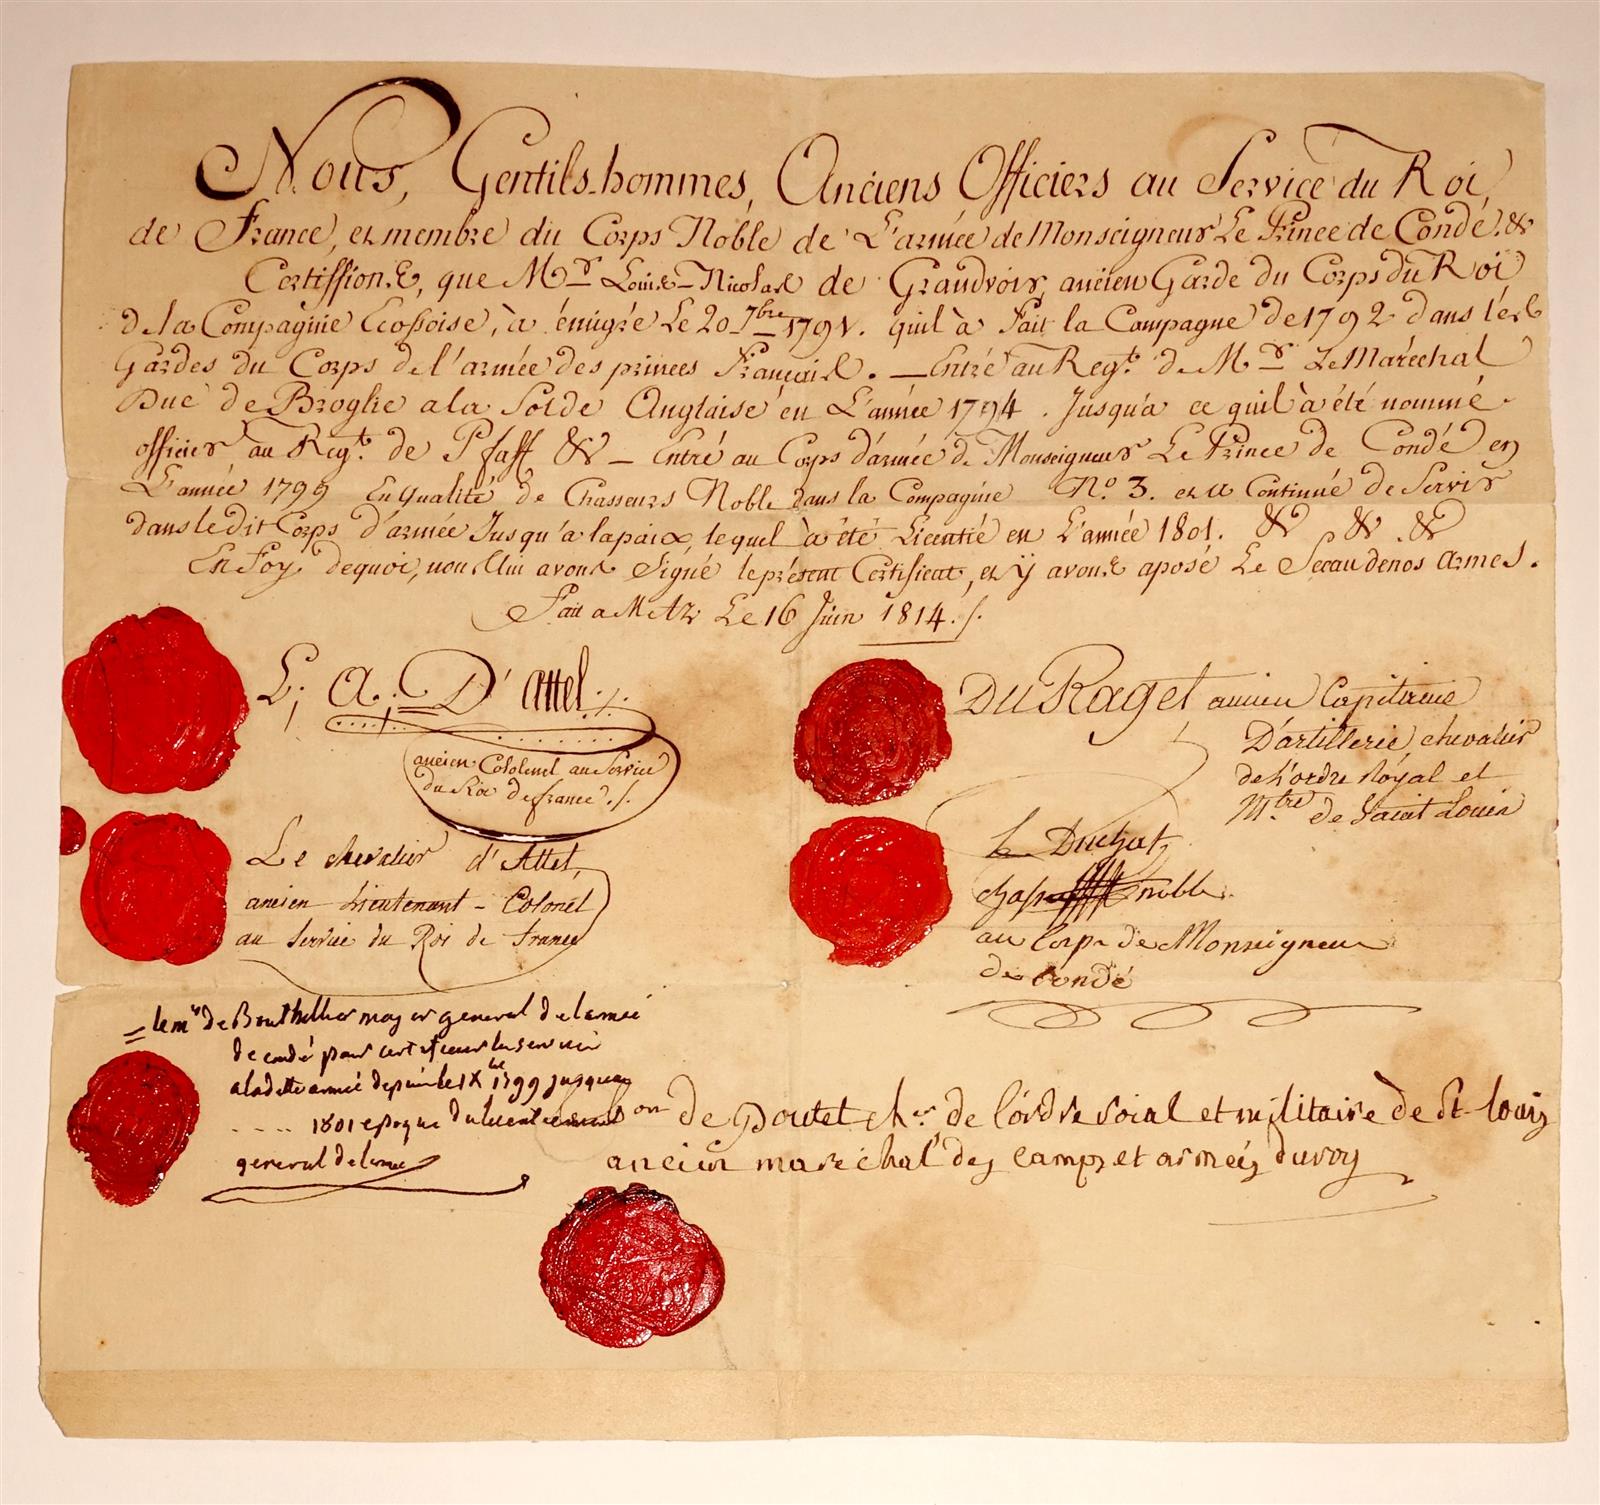 Nous, Gentils-hommes, Anciens Officiers au Service du Roi
de France, et membre du Corps Noble de L'armée de Monseigneur Le Prince de Condé. &
Certiffions, que Mr Louis-Nicolas de Grandvoir, ancien Garde du Corps du Roi
de la Compagnie Ecossoise, à émigré Le 20 7bre 1791. quil à Fait la Campagne de 1792 dans les
Gardes du Corps de l'armée des princes Français. — Entré au Regt. de Mr Le Maréchal
Duc de Broglie a la Solde Anglaise en L'année 1794. Jusqu'a ce quil à été nommé
officier au Regt. de Pfaff & — Entré au Corps d'armée de Monseigneur Le Prince de Condé en
L'année 1799 En qualité de Chasseurs Noble dans la Compagnie No. 3. et a Continué de Servir
dans le dit Corps d'armée Jusqu'à la paix, le quel à été Licentié en L'année 1801. & & &
En Foy de quoi, nous lui avons Signé le présent Certificat, et y avons aposé Le Sceau de nos Armes.
Fait a Metz Le 16 Juin 1814./.
L; A; D'Attel
ancien Colonel au Service
du Roi de france./.
Le chevalier d'Attel,
ancien Lieutenant-Colonel
au Service du Roi de France
Du Raget ancien Capitaine
D'artillerie, chevalier
de L'ordre Royal et
Mtre de Saint Louis
Le Duchat
chass noble
au Corps de Monseigneur
de Condé
= le mis de Bouthillier major general de larmée
de condé pour certifier les services
a ladette armée depuis le 1 Xbre 1799 jusquau
.... 1801 epoque du licentiement
general de larmée
on de Poutet chr. de l'ordre roial et militaire de St louis
ancien marechal des camps et armées du roy